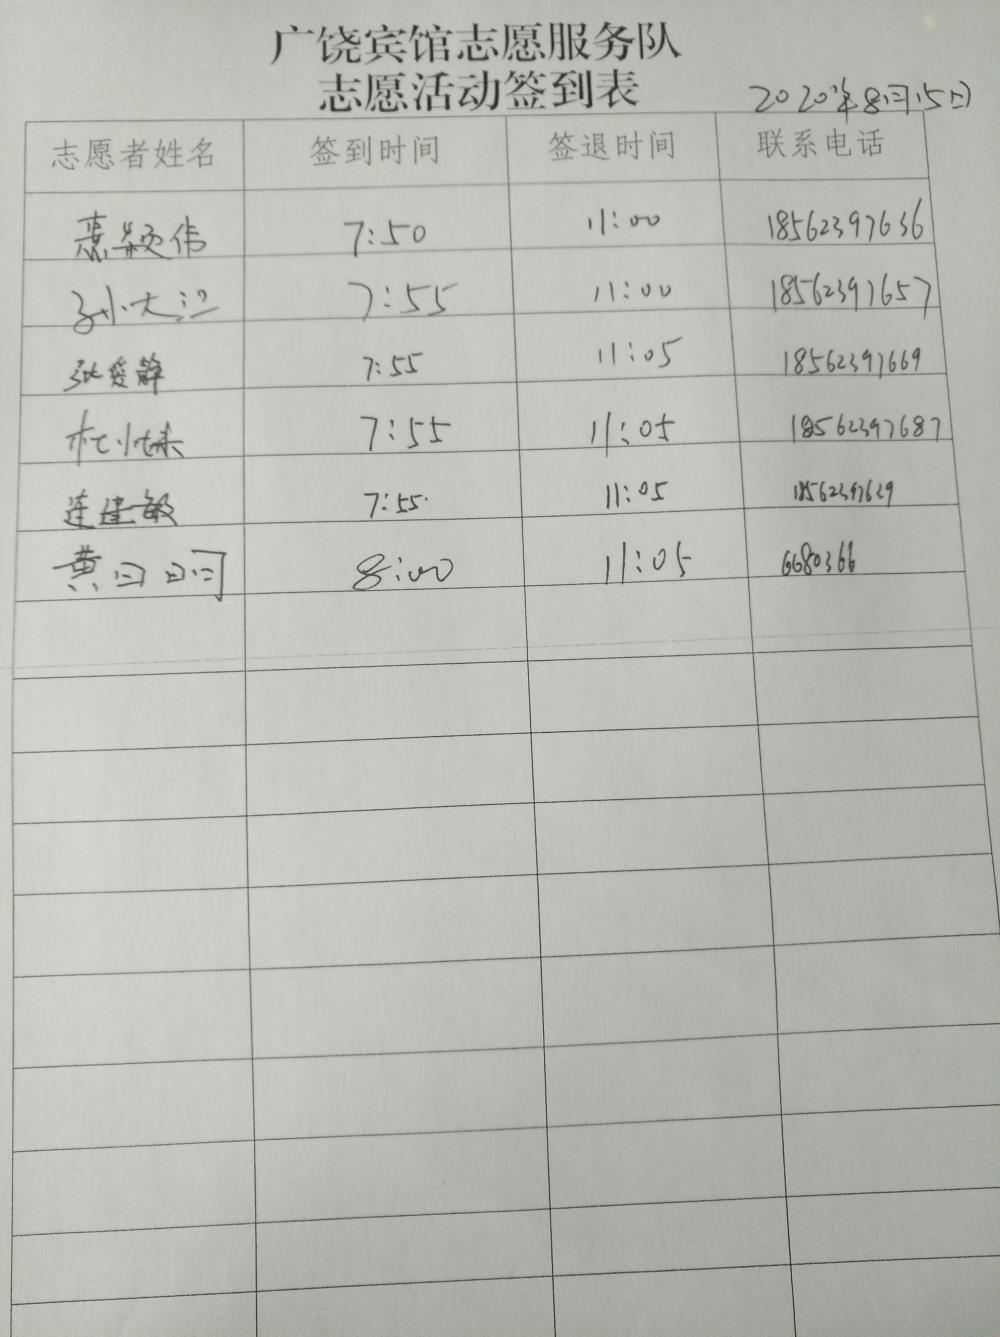 广饶宾馆志愿服务队
志愿活动签到表
2020年8月15日
志愿者姓名 签到时间 签退时间 联系电话
颖伟 7:50 11:00 18562397636
孙大江 7:55 11:00 18562397657
张爱静 7:55 11:05 18562397669
杜小妹 7:55 11:05 18562397687
连建敏 7:55 11:05 18562397629
黄 8:00 11:05 6680366